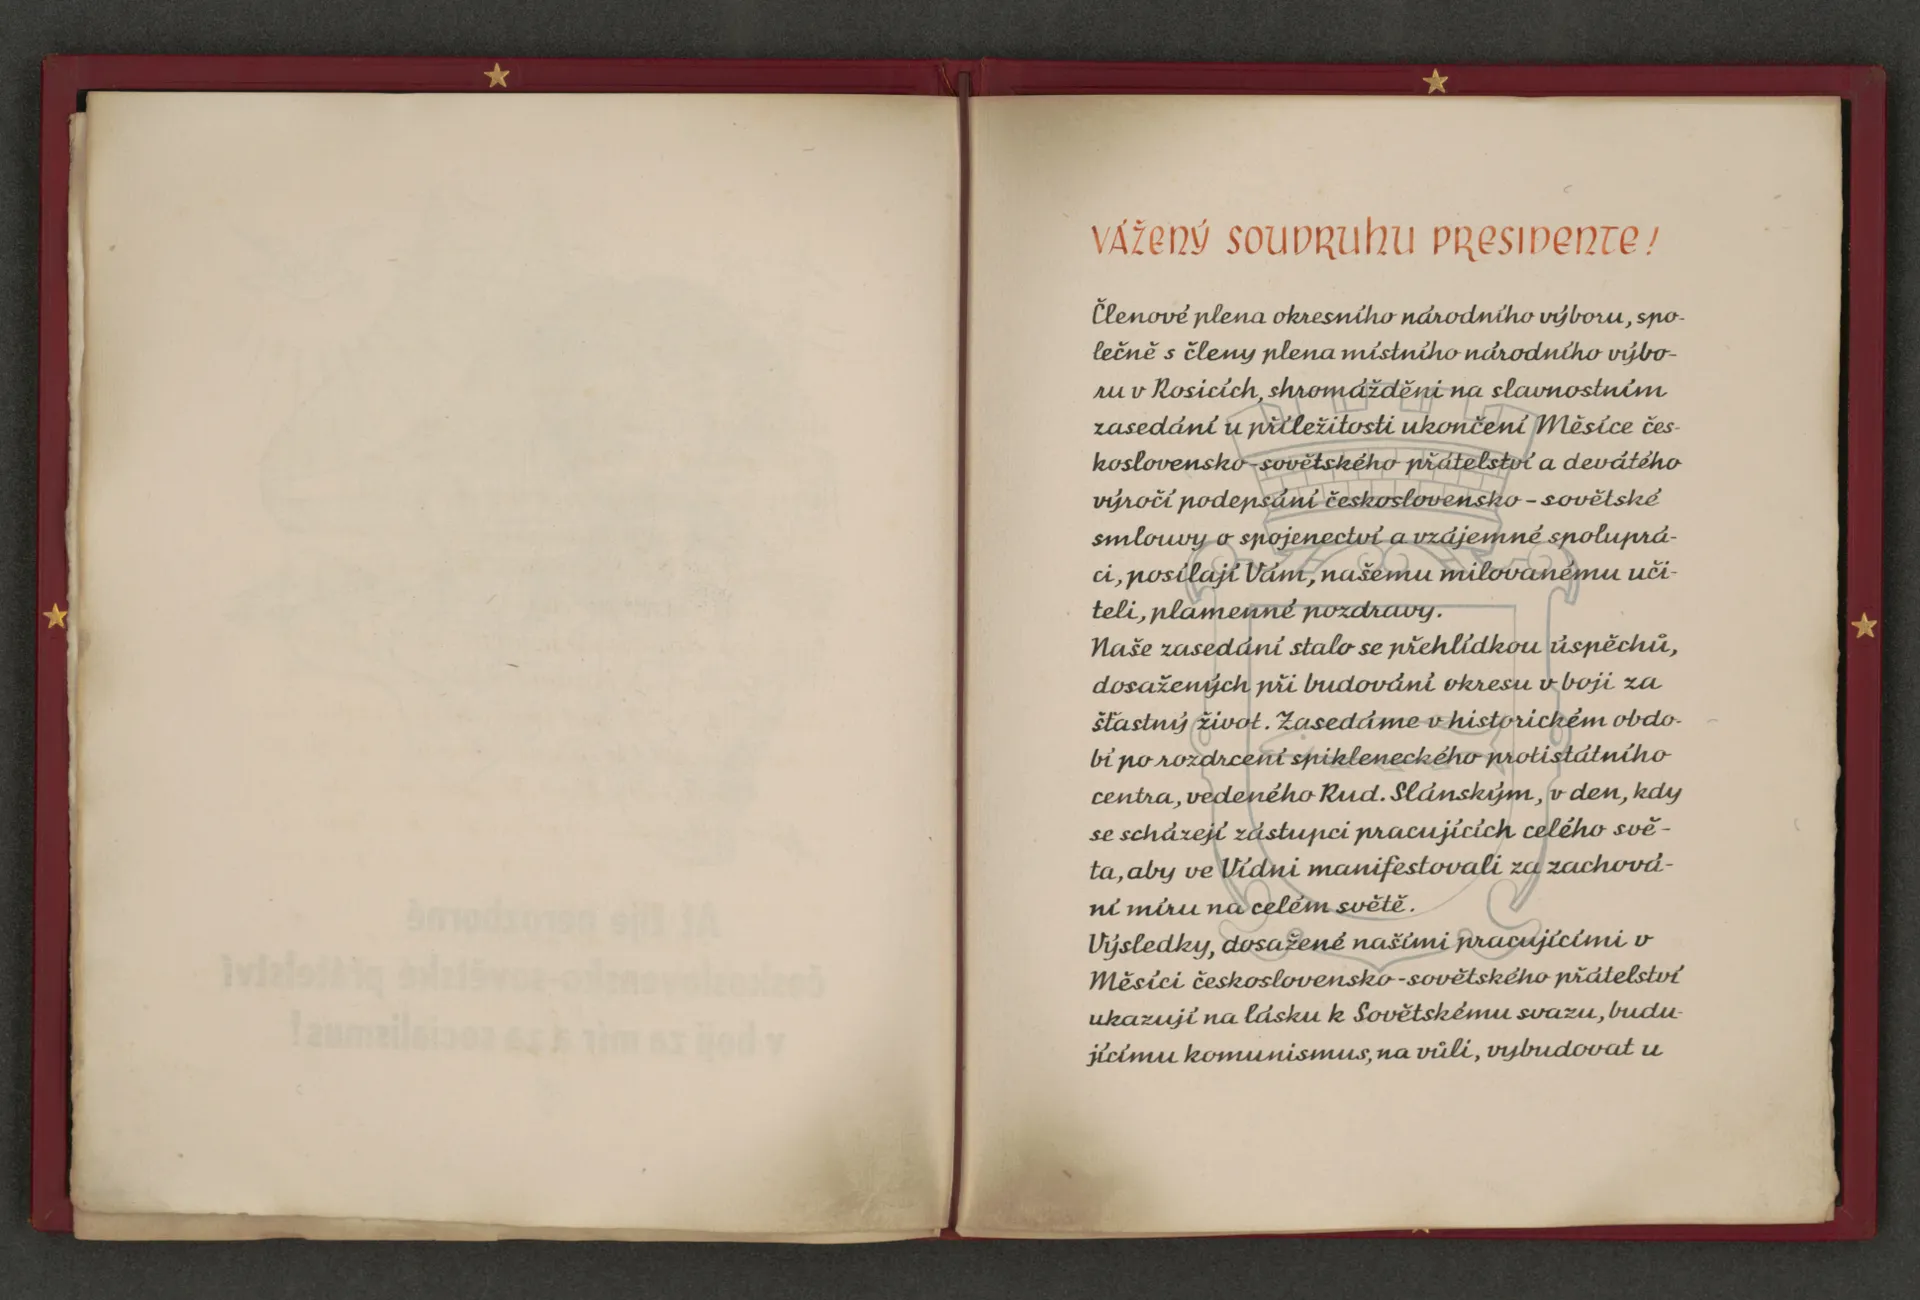 Ať žije nerozborné
československo-sovětské přátelství
v boji za mír a za socialismus!
VÁŽENÝ SOUDRUHU PRESIDENTE!
Členové plena okresního národního výboru, spo-
lečně s členy plena místního národního výbo-
ru v Rosicích, shromážděni na slavnostním
zasedání u příležitosti ukončení Měsíce čes-
koslovensko-sovětského přátelství a devátého
výročí podepsání československo-sovětské
smlouvy o spojenectví a vzájemné spoluprá-
ci, posílají Vám, našemu milovanému uči-
teli, plamenné pozdravy.
Naše zasedání stalo se přehlídkou úspěchů,
dosažených při budování okresu v boji za
šťastný život. Zasedáme v historickém obdo-
bí po rozdrcení spikleneckého protistátního
centra, vedeného Rud. Slánským, v den, kdy
se scházejí zástupci pracujících celého svě-
ta, aby ve Vídni manifestovali za zachová-
ní míru na celém světě.
Výsledky, dosažené našimi pracujícími v
Měsíci československo-sovětského přátelství
ukazují na lásku k Sovětskému svazu, budu-
jícímu komunismus, na vůli, vybudovat u